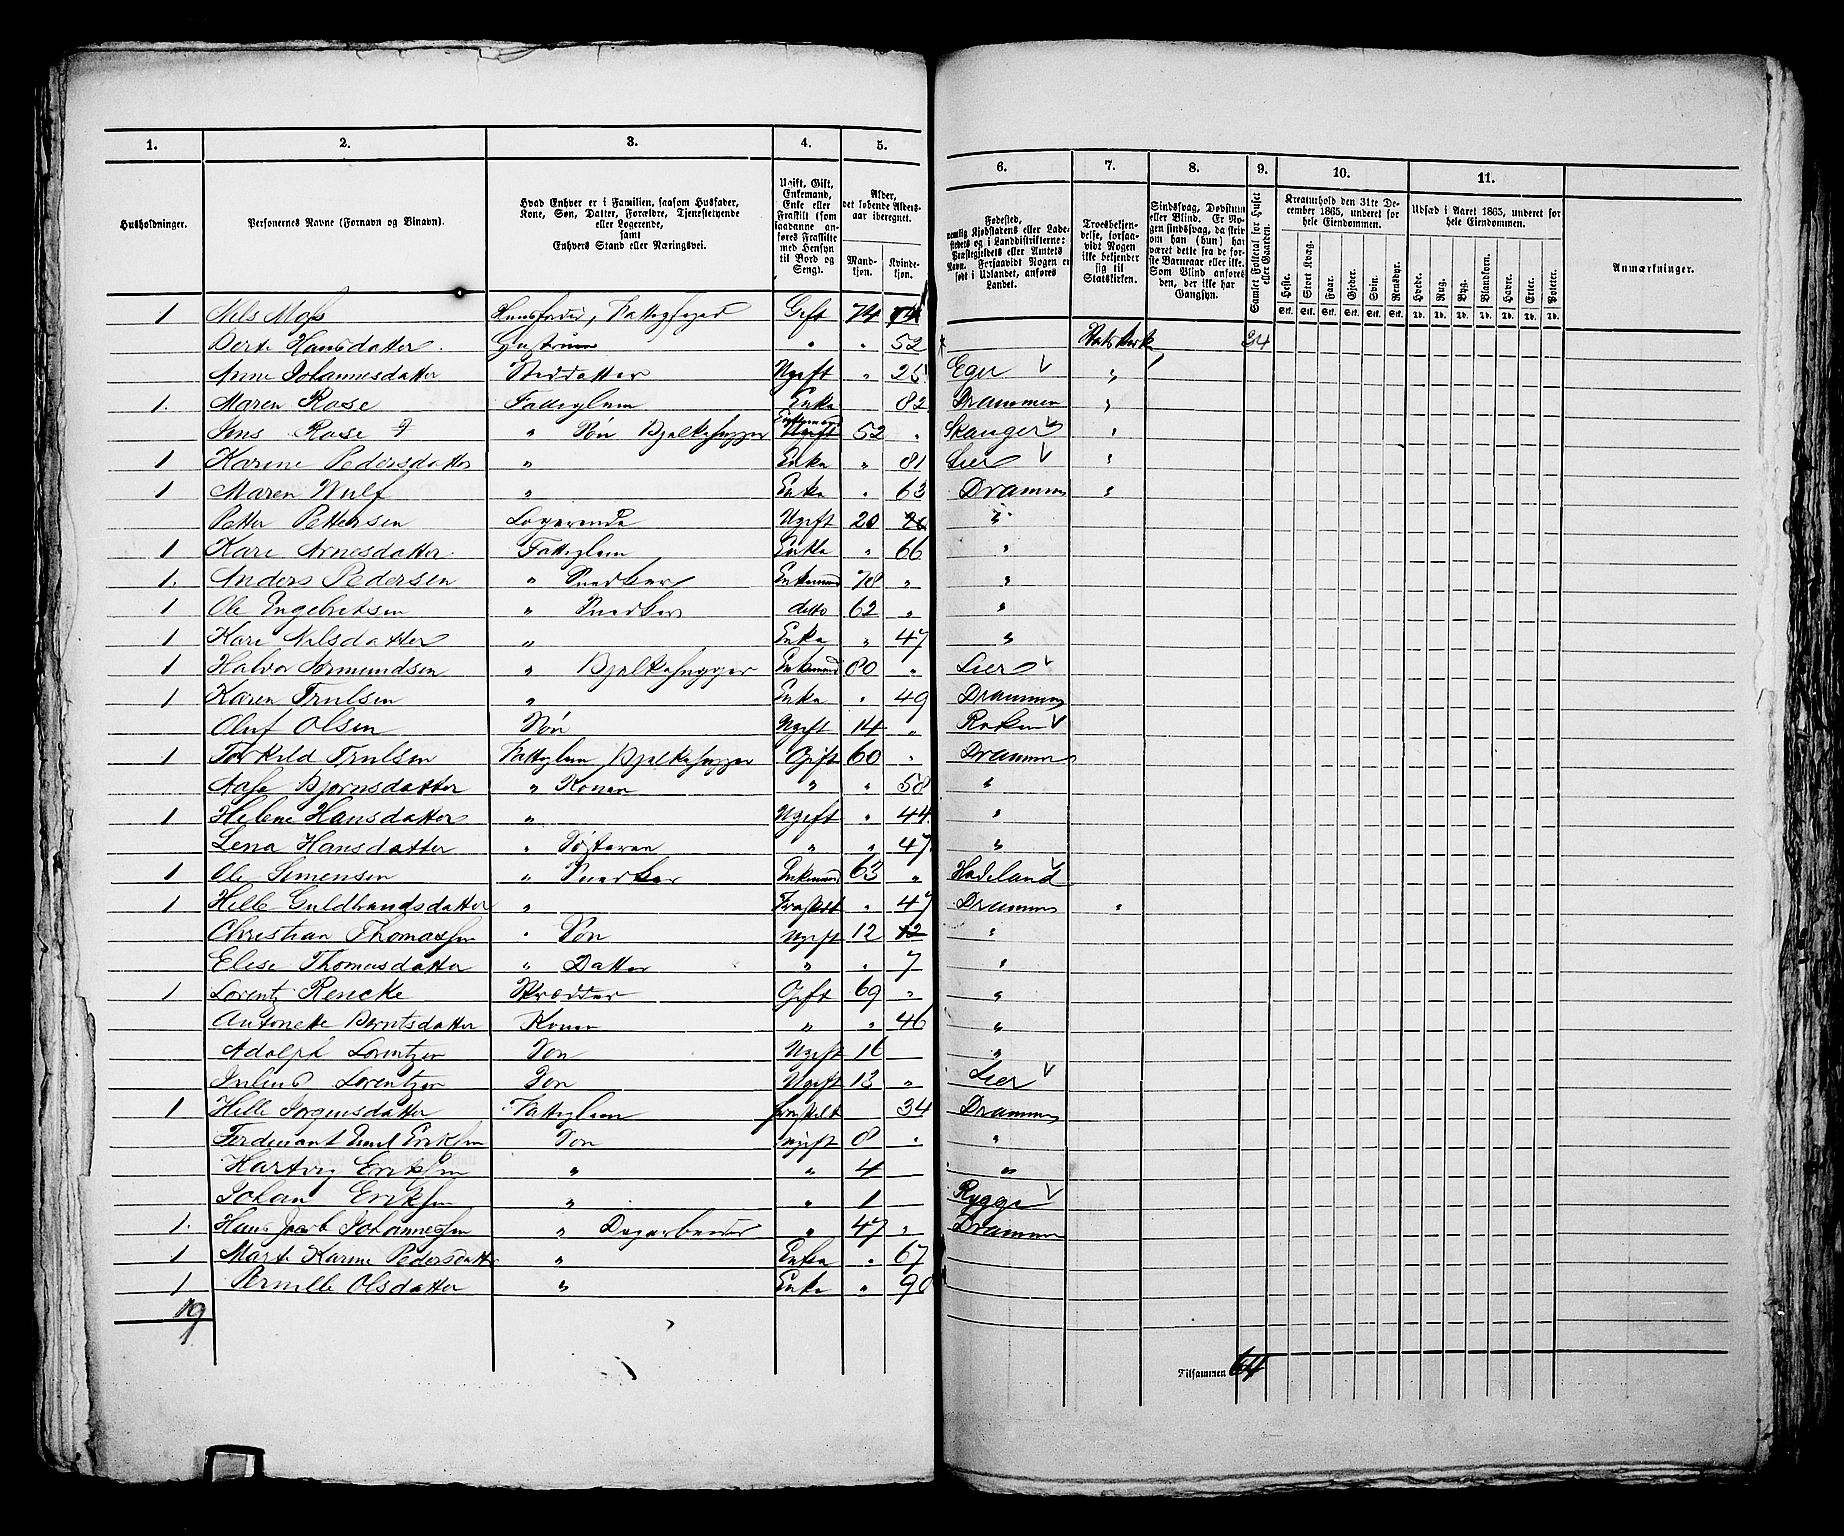 1. 2. 3. 4. 5. 6. 7. 8. 9. 10. 11.
Husholdninger.
Personernes Navne (Fornavn og Binavn).
Hvad Enhver er i Familien, saasom Husfader, Kone, Søn, Datter, Forældre, Tjenestetyende eller Logerende, samt Enhvers Stand eller Næringsvei.
Ugift, Gift, Enkemand, Enke eller Fraskilt (som saadanne anføres Fraskilte med Hensyn til Bord og Seng).
Alder, det løbende Alders-aar iberegnet.
Mand-kjøn. Kvinde-kjøn.
Fødested, nemlig Kjøbstadens eller Lade-stedets og i Landdistrikterne: Præstegjeldets eller Amtets Navn. Forsaavidt Nogen er født i Udlandet, anføres Landet.
Troesbekjen-delse, forsaa-vidt Nogen ikke bekjender sig til Statskirken.
Sindssvag, Døvstum eller Blind. Er No-gen sindssvag, da skriv om han (hun) har været dette fra de før-ste Barneaar eller ikke. Som Blind anføres den, der ikke har Gangsyn.
Samlet Folketal for Huset eller Gaarden.
Kreaturhold den 31te De-cember 1865, underet for hele Eiendommen.
Heste. Stort Kvæg. Faar. Gjeder. Svin. Rensdyr.
Stk. Stk. Stk. Stk. Stk. Stk.
Udsæd i Aaret 1865, underet for hele Eiendommen.
Hvede. Rug. Byg. Blandkorn. Havre. Erter. Poteter.
Td. Td. Td. Td. Td. Td. Td.
Anmærkninger.
1 Nils Moss Gift 74
Berte Hansdatter Hustruen " " 52 Statskirk 34
Anne Johannesdatter Steddatter Ugift " 25 Eger "
1. Maren Rose Fattiglem Enke 82 Drammen "
Jens Rose " Søn Bjelkehugger Enkemand 52 " "
1 Karine Pedersdatter " Enke " 81 Lier "
1 Maren Wulf " Enke " 63 Drammen "
Petter Pettersen Logerende Ugift 20 "
1 Kari Arnesdatter Fattiglem Enke " 66 "
1. Anders Pedersen " Snedker Enkemand 78 " "
1 Ole Engebretsen " Snedker detto 62 " "
1 Kari Nilsdatter " Enke " 47 "
1 Halvor Aamundsen " Bjelkehugger Enkemand 80 " Lier
1 Karen Trulsen " Enke " 49 Drammen
Oluf Olsen Søn Ugift 14 " Røken
1 Torkild Trulsen Fattiglem Bjelkehugger Gift 60 " Drammen
Aase Bjørnsdatter " Konen " " 58 "
1 Helene Hansdatter " Ugift " 44 "
Lena Hansdatter " Søsteren " " 47 "
1 Ole Simensen " Snedker Enkemand 63 " Hadeland
1 Helle Guldbrandsdatter " Fraskilt " 47 Drammen "
Christian Thomassen " Søn Ugift 12 "
Elise Thomasdatter " Datter " " 7 "
1 Lorentz Rencke Skrædder Gift 69 " "
Antonette Berntsdatter Konen " " 46 "
Adolph Lorentzen Søn Ugift 16 "
Julius Lorentzen Søn Ugift 13 " Lier
1 Helle Jørgensdatter Fattiglem fraskilt 34 Drammen
Ferdinant Emil Eriksen Søn ugift 8 " "
Hartvig Eriksen " " 4 "
Johan Eriksen " " 1 Rygge
1. Hans Jacob Johannessen " Dagarbeider " 47 " Drammen
1 Marte Karine Pedersdatter " Enke " 67
1 Pernille Olsdatter " Enke " 90
19
Tilsammen